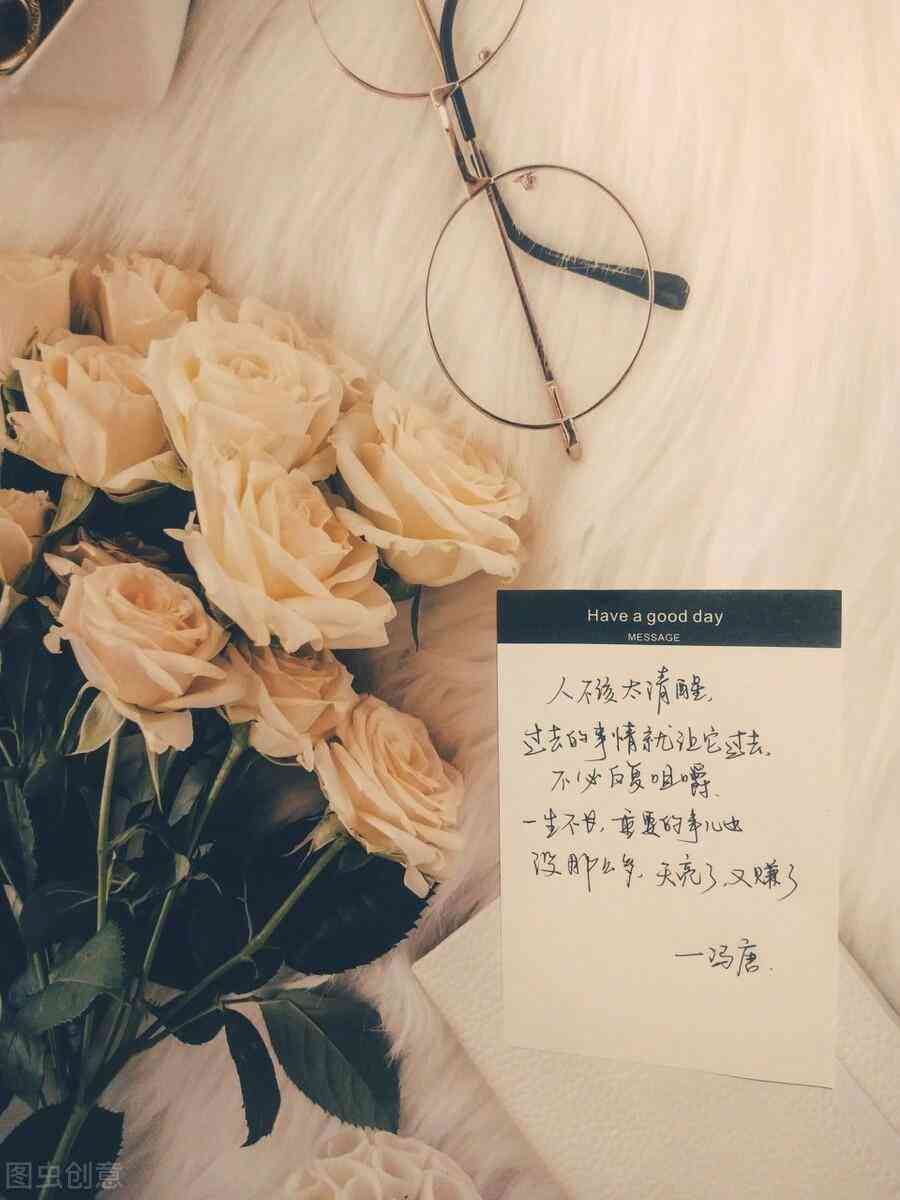 Have a good day
MESSAGE
人不该太清醒,
过去的事情就让它过去,
不必反复咀嚼.
一生不长,重要的事儿也
没那么多,天亮了,又赚了
一冯唐.
图虫创意